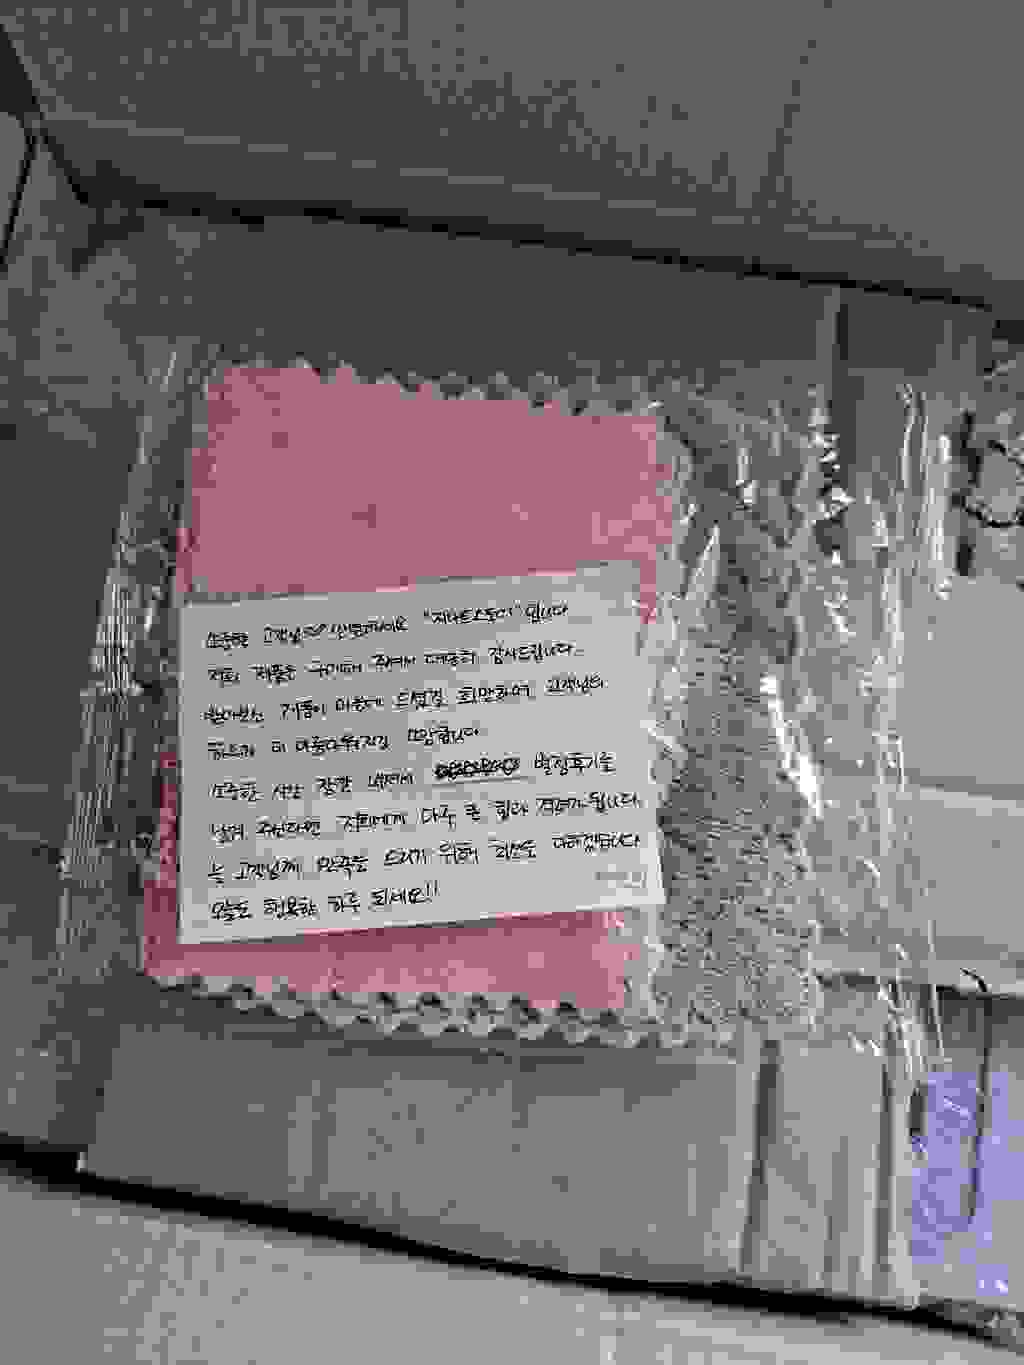 소중한 고객님♡ 안녕하세요 "지나트스튜디"입니다
저희 제품을 구매해 주셔서 대단히 감사드립니다.
받아보신 제품이 마음에 드셨길 희망하며, 고객님의
더 아름다워지길 소망합니다
소중한 시간 잠깐 내셔서 별점후기를
남겨 주신다면 저희에게 아주 큰 힘과 격려가 됩니다.
늘 고객님께 만족을 드리기 위해 최선을 다하겠습니다
오늘도 행복한 하루 되세요!!